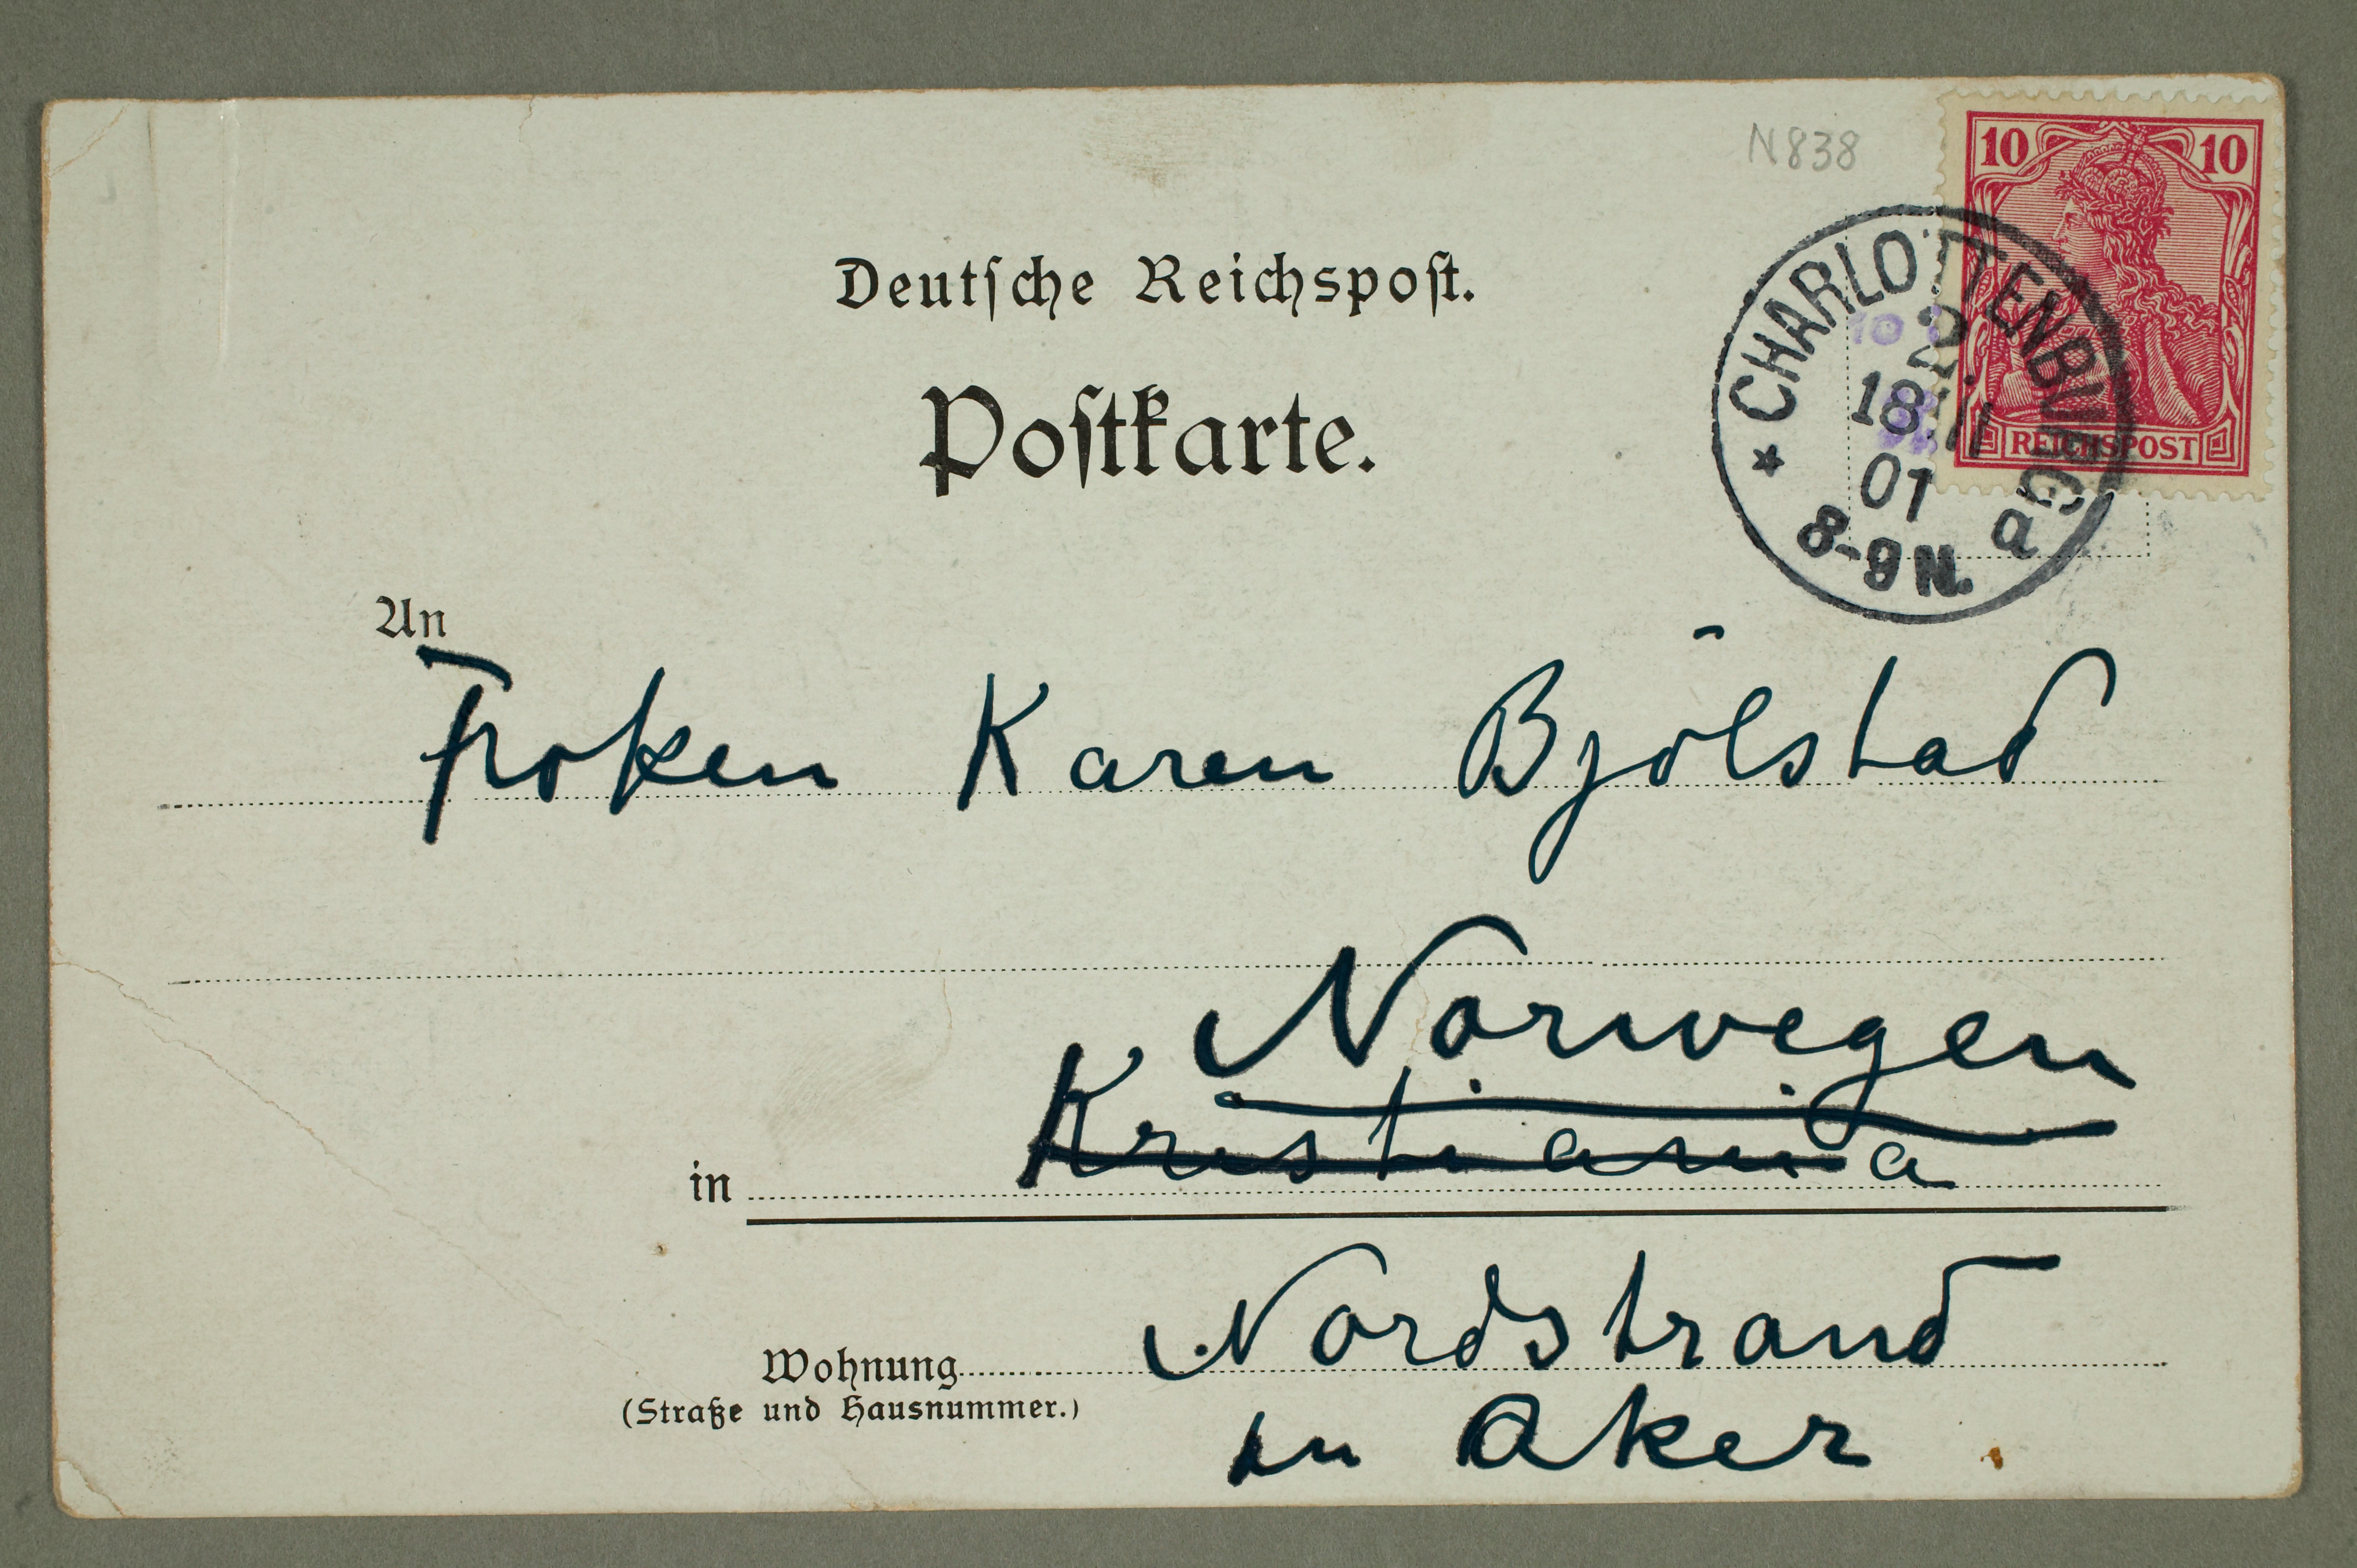 N838
10 10
REICHSPOST
Deutſche Reichspoſt.
Poſtkarte.
CHARLOTTENBURG
2.
18.11
01
8-9N.
a
An
Froken Karen Bjölstad
Norwegen
in Kristiania
Wohnung Nordstrand
(Straße und Hausnummer.)
in Aker